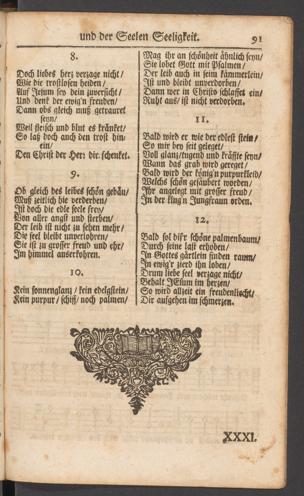 und der Seelen Seeligkeit.
91
8.
Doch liebes herz verzage nicht/
Wie die trostlosen heiden/
Auf Jesum sey dein zuversicht/
Und denk der ewig'n freuden/
Dann obs gleich muß getrauret
seyn/
Weil fleisch und blut es kränket/
So laß doch auch den trost hin-
ein/
Den Christ der Herr dir schenket.
9.
Ob gleich des leibes schön gebäu/
Muß zeitlich hie verderben/
Ist doch die edle seele frey/
Von aller angst und sterben/
Der leib ist nicht zu sehen mehr/
Die seel bleibt unverlohren/
Sie ist zu grosser freud und ehr/
Im himmel auserkohren.
10.
Kein sonnenglanz/ kein edelgstein/
Kein purpur/ schiff/ noch palmen/
Mag ihr an schönheit ähnlich seyn/
Sie lobet Gott mit Psalmen/
Der leib auch in seim kämmerlein/
Ist und bleibt unverdorben/
Dann wer in Christo schlaffet ein/
Ruht aus/ ist nicht verdorben.
11.
Bald wird er wie der edlest stein/
So mir bey seit geleget/
Voll glanz/ tugend und kräffte seyn/
Wann das grab wird gereget/
Bald wird der könig'n purpurkleid/
Welchs schön gesäubert worden/
Ihr angelegt mit grosser freud/
In der klug'n Jungfrauen orden.
12.
Bald sol diß schöne palmenbaum/
Durch seine last erhoben/
In Gottes gärtlein finden raum/
In ewig'r zierd ihn loben/
Drum liebe seel verzage nicht/
Behalt JEsum im herzen/
So wird allzeit ein freudenliecht/
Dir aufgehen im schmerzen.
XXXI.